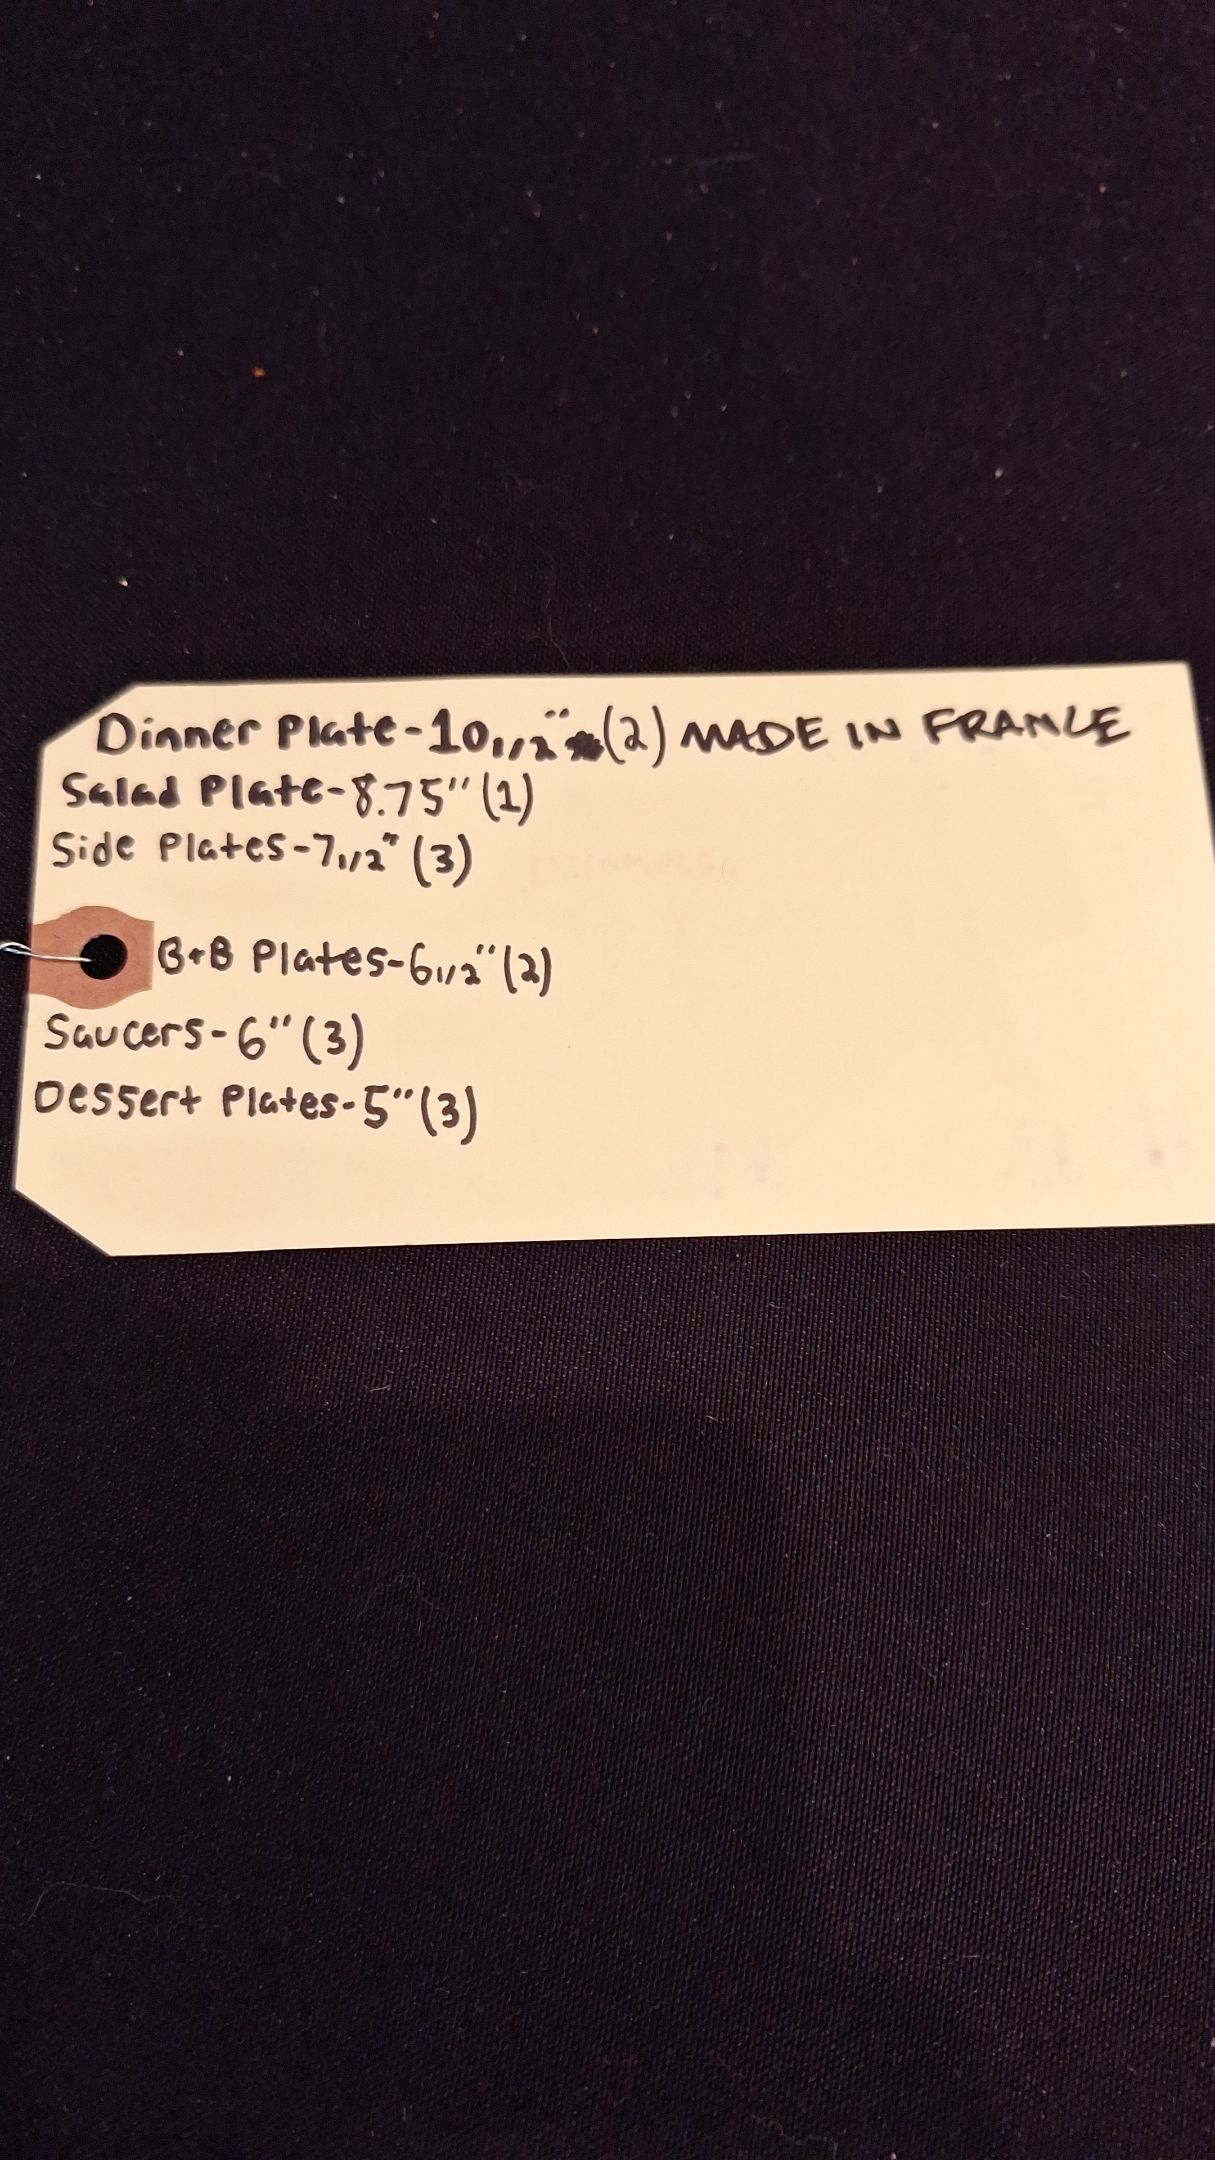 Dinner Plate-10 1/2" (2) MADE IN FRANCE
Salad Plate-8.75" (1)
Side Plates-7 1/2" (3)
B+B Plates-6 1/2" (2)
Saucers-6" (3)
Dessert Plates-5" (3)